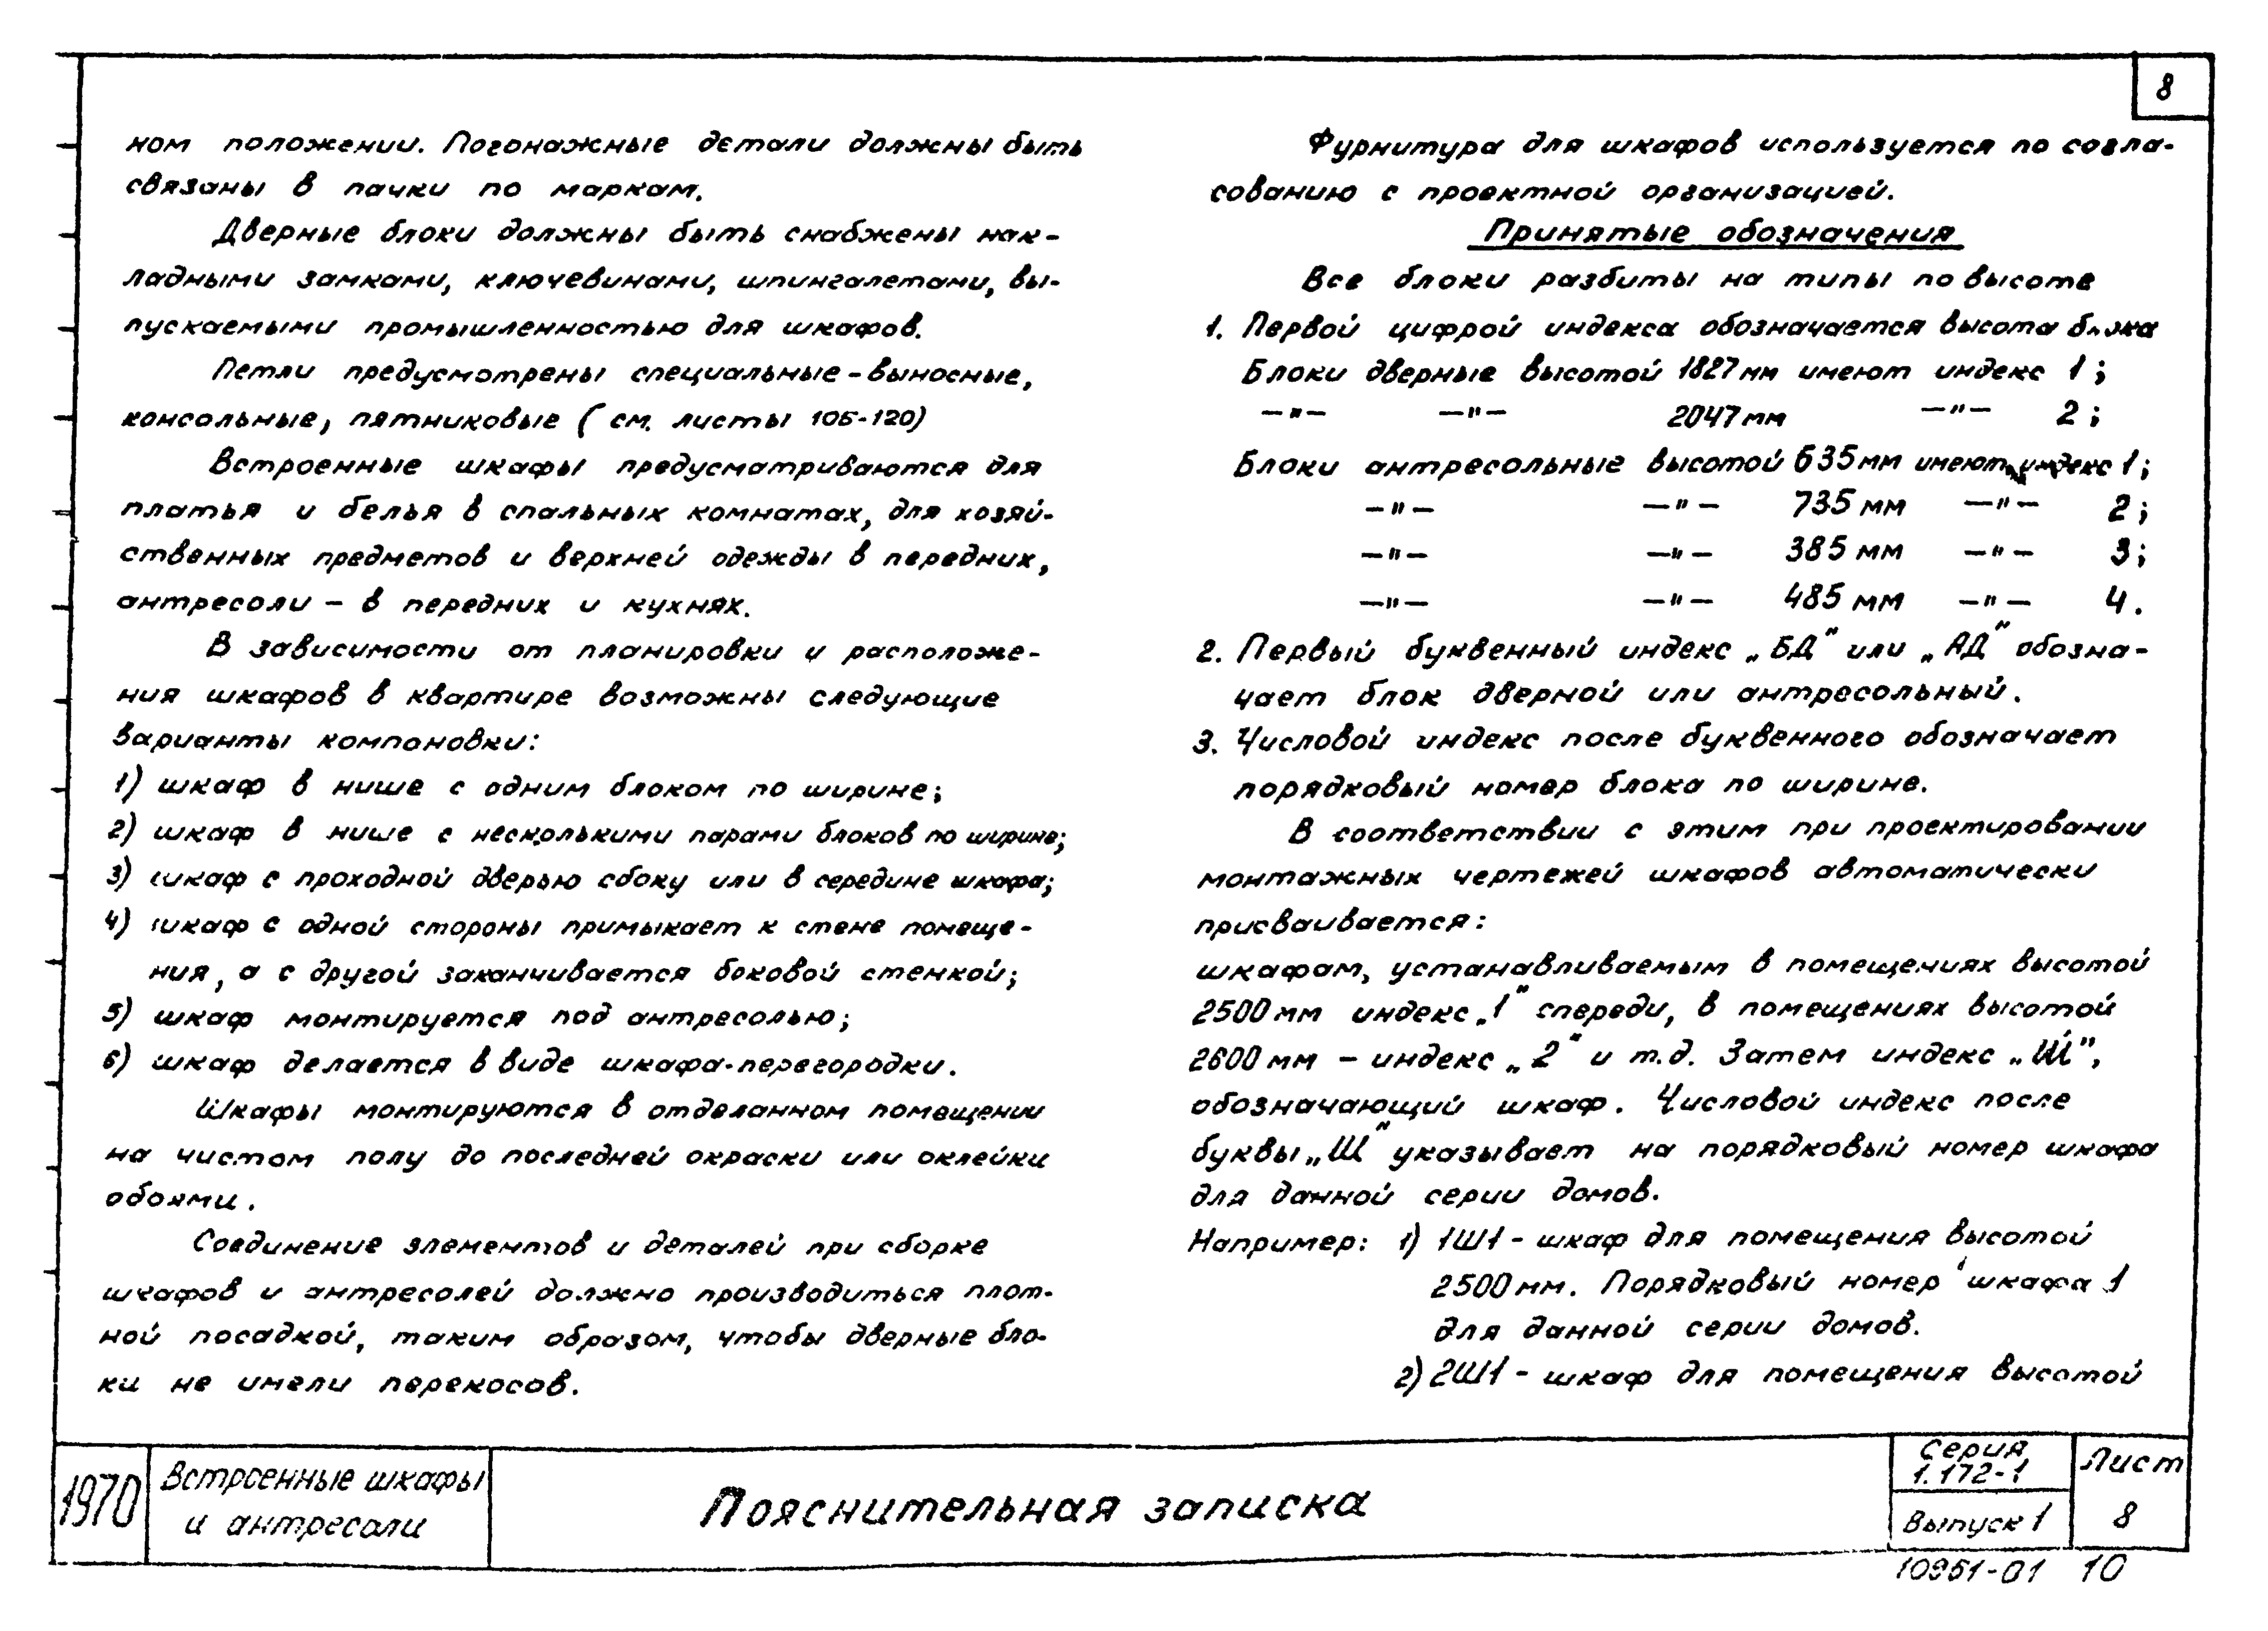 8
ном положении. Погонажные детали должны быть
связаны в пачки по маркам.
Дверные блоки должны быть снабжены нак-
ладными замками, ключевинами, шпингалетами, вы-
пускаемыми промышленностью для шкафов.
Петли предусмотрены специальные - выносные,
консольные, пятниковые ( см. листы 106-120)
Встроенные шкафы предусматриваются для
платья и белья в спальных комнатах, для хозяй-
ственных предметов и верхней одежды в передних,
антресоли - в передних и кухнях.
В зависимости от планировки и расположе-
ния шкафов в квартире возможны следующие
варианты компоновки:
1) шкаф в нише с одним блоком по ширине;
2) шкаф в нише с несколькими парами блоков по ширине;
3) шкаф с проходной дверью сбоку или в середине шкафа;
4) шкаф с одной стороны примыкает к стене помеще-
ния, а с другой заканчивается боковой стенкой;
5) шкаф монтируется под антресолью;
6) шкаф делается в виде шкафа-перегородки.
Шкафы монтируются в отделанном помещении
на чистом полу до последней окраски или оклейки
обоями.
Соединение элементов и деталей при сборке
шкафов и антресолей должно производиться плот-
ной посадкой, таким образом, чтобы дверные бло-
ки не имели перекосов.
Фурнитура для шкафов используется по согла-
сованию с проектной организацией.
Принятые обозначения
Все блоки разбиты на типы по высоте
1. Первой цифрой индекса обозначается высота блока
Блоки дверные высотой 1827 мм имеют индекс 1;
—"— —"— 2047 мм —"— 2;
Блоки антресольные высотой 635 мм имеют индекс 1;
—"— —"— 735 мм —"— 2;
—"— —"— 385 мм —"— 3;
—"— —"— 485 мм —"— 4.
2. Первый буквенный индекс „БД" или „АД" обозна-
чает блок дверной или антресольный.
3. Числовой индекс после буквенного обозначает
порядковый номер блока по ширине.
В соответствии с этим при проектировании
монтажных чертежей шкафов автоматически
присваивается:
шкафам, устанавливаемым в помещениях высотой
2500 мм индекс „1" спереди, в помещениях высотой
2600 мм - индекс „2" и т.д. Затем индекс „Ш",
обозначающий шкаф. Числовой индекс после
буквы „Ш" указывает на порядковый номер шкафа
для данной серии домов.
Например: 1) 1Ш1 - шкаф для помещения высотой
2500 мм. Порядковый номер шкафа 1
для данной серии домов.
2) 2Ш1 - шкаф для помещения высотой
1970
Встроенные шкафы
и антресоли
Пояснительная записка
Серия
1.172-1
Выпуск 1
Лист
8
10951-01 10